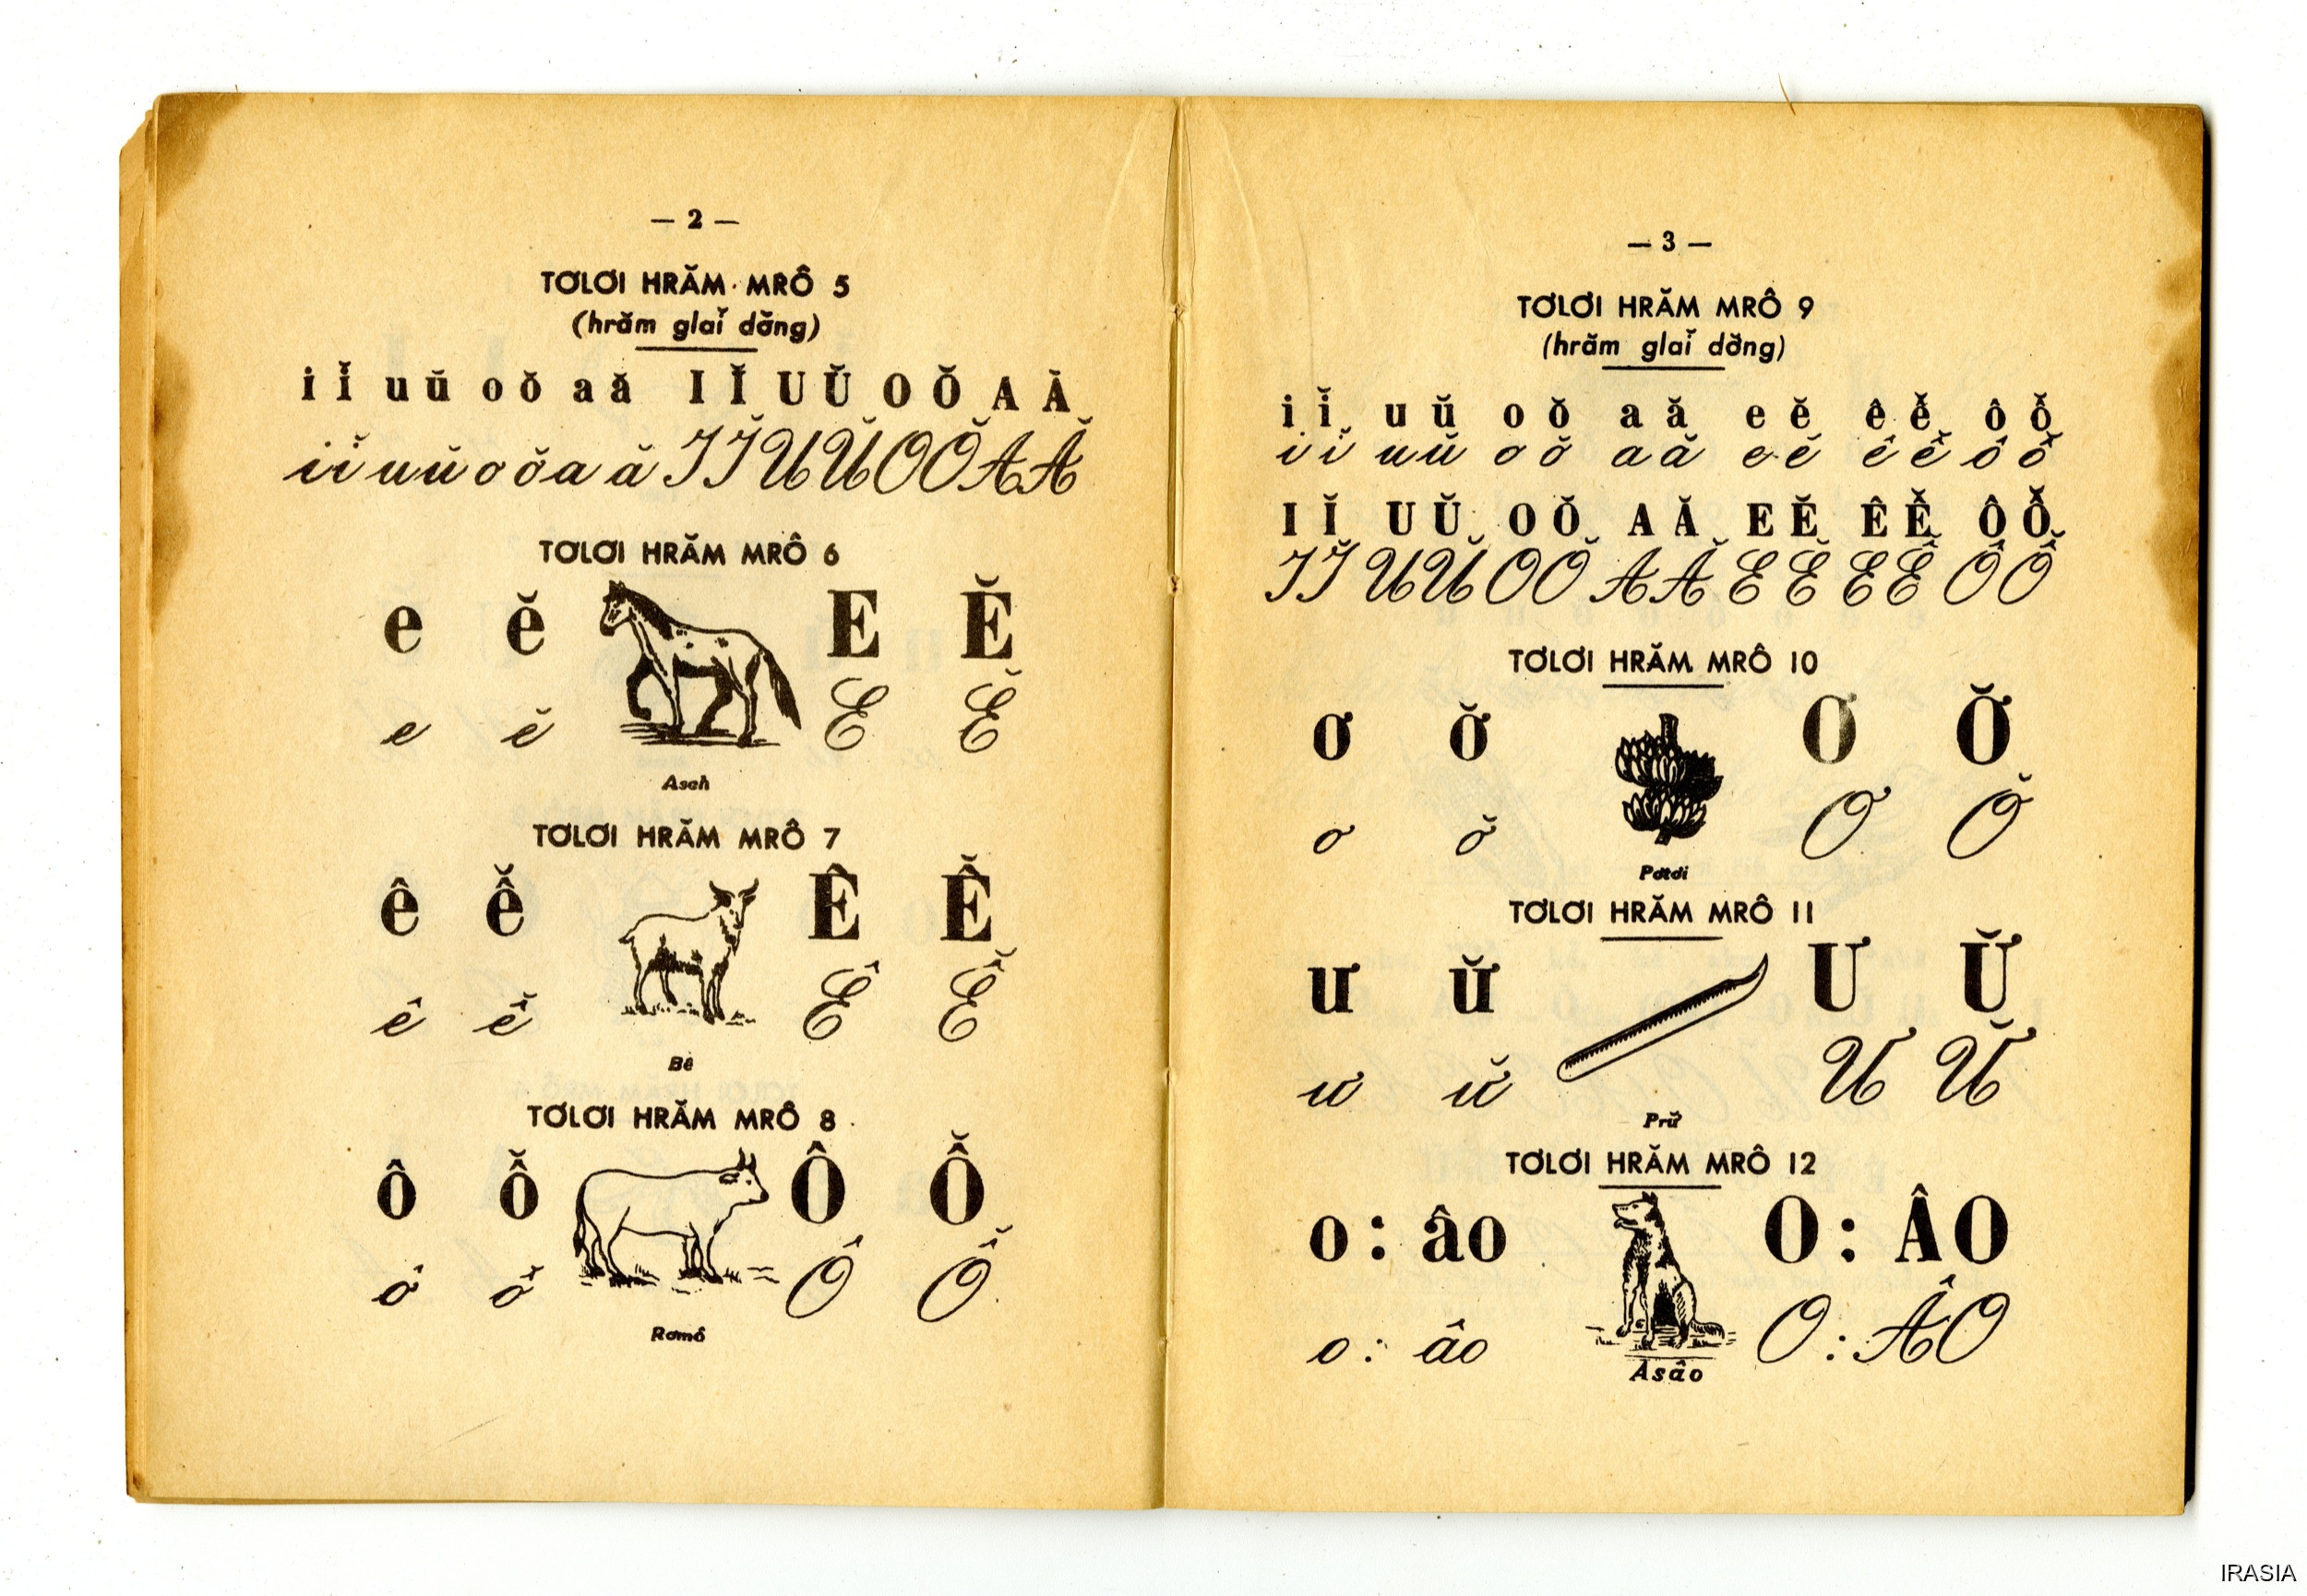 — 2 —
TƠLƠI HRĂM MRÔ 5
(hrăm glaĭ dơ̆ng)
i ĭ u ŭ o ŏ a ă I Ĭ U Ŭ O Ŏ A Ă
i ĭ u ŭ o ŏ a ă I Ĭ U Ŭ O Ŏ A Ă
TƠLƠI HRĂM MRÔ 6
e ĕ E Ĕ
e ĕ E Ĕ
Aseh
TƠLƠI HRĂM MRÔ 7
ê ê̆ Ê Ê̆
ê ê̆ Ê Ê̆
Bê
TƠLƠI HRĂM MRÔ 8
ô ô̆ Ô Ô̆
ô ô̆ Ô Ô̆
Rơmô
— 3 —
TƠLƠI HRĂM MRÔ 9
(hrăm glaĭ dơ̆ng)
i ĭ u ŭ o ŏ a ă e ĕ ê ê̆ ô ô̆
i ĭ u ŭ o ŏ a ă e ĕ ê ê̆ ô ô̆
I Ĭ U Ŭ O Ŏ A Ă E Ĕ Ê Ê̆ Ô Ô̆
I Ĭ U Ŭ O Ŏ A Ă E Ĕ Ê Ê̆ Ô Ô̆
TƠLƠI HRĂM MRÔ 10
ơ ơ̆ Ơ Ơ̆
ơ ơ̆ Ơ Ơ̆
Pơtơi
TƠLƠI HRĂM MRÔ 11
ư ư̆ Ư Ư̆
ư ư̆ Ư Ư̆
Prư̆
TƠLƠI HRĂM MRÔ 12
o : âo O : ÂO
o : âo O : ÂO
Asâo
IRASIA